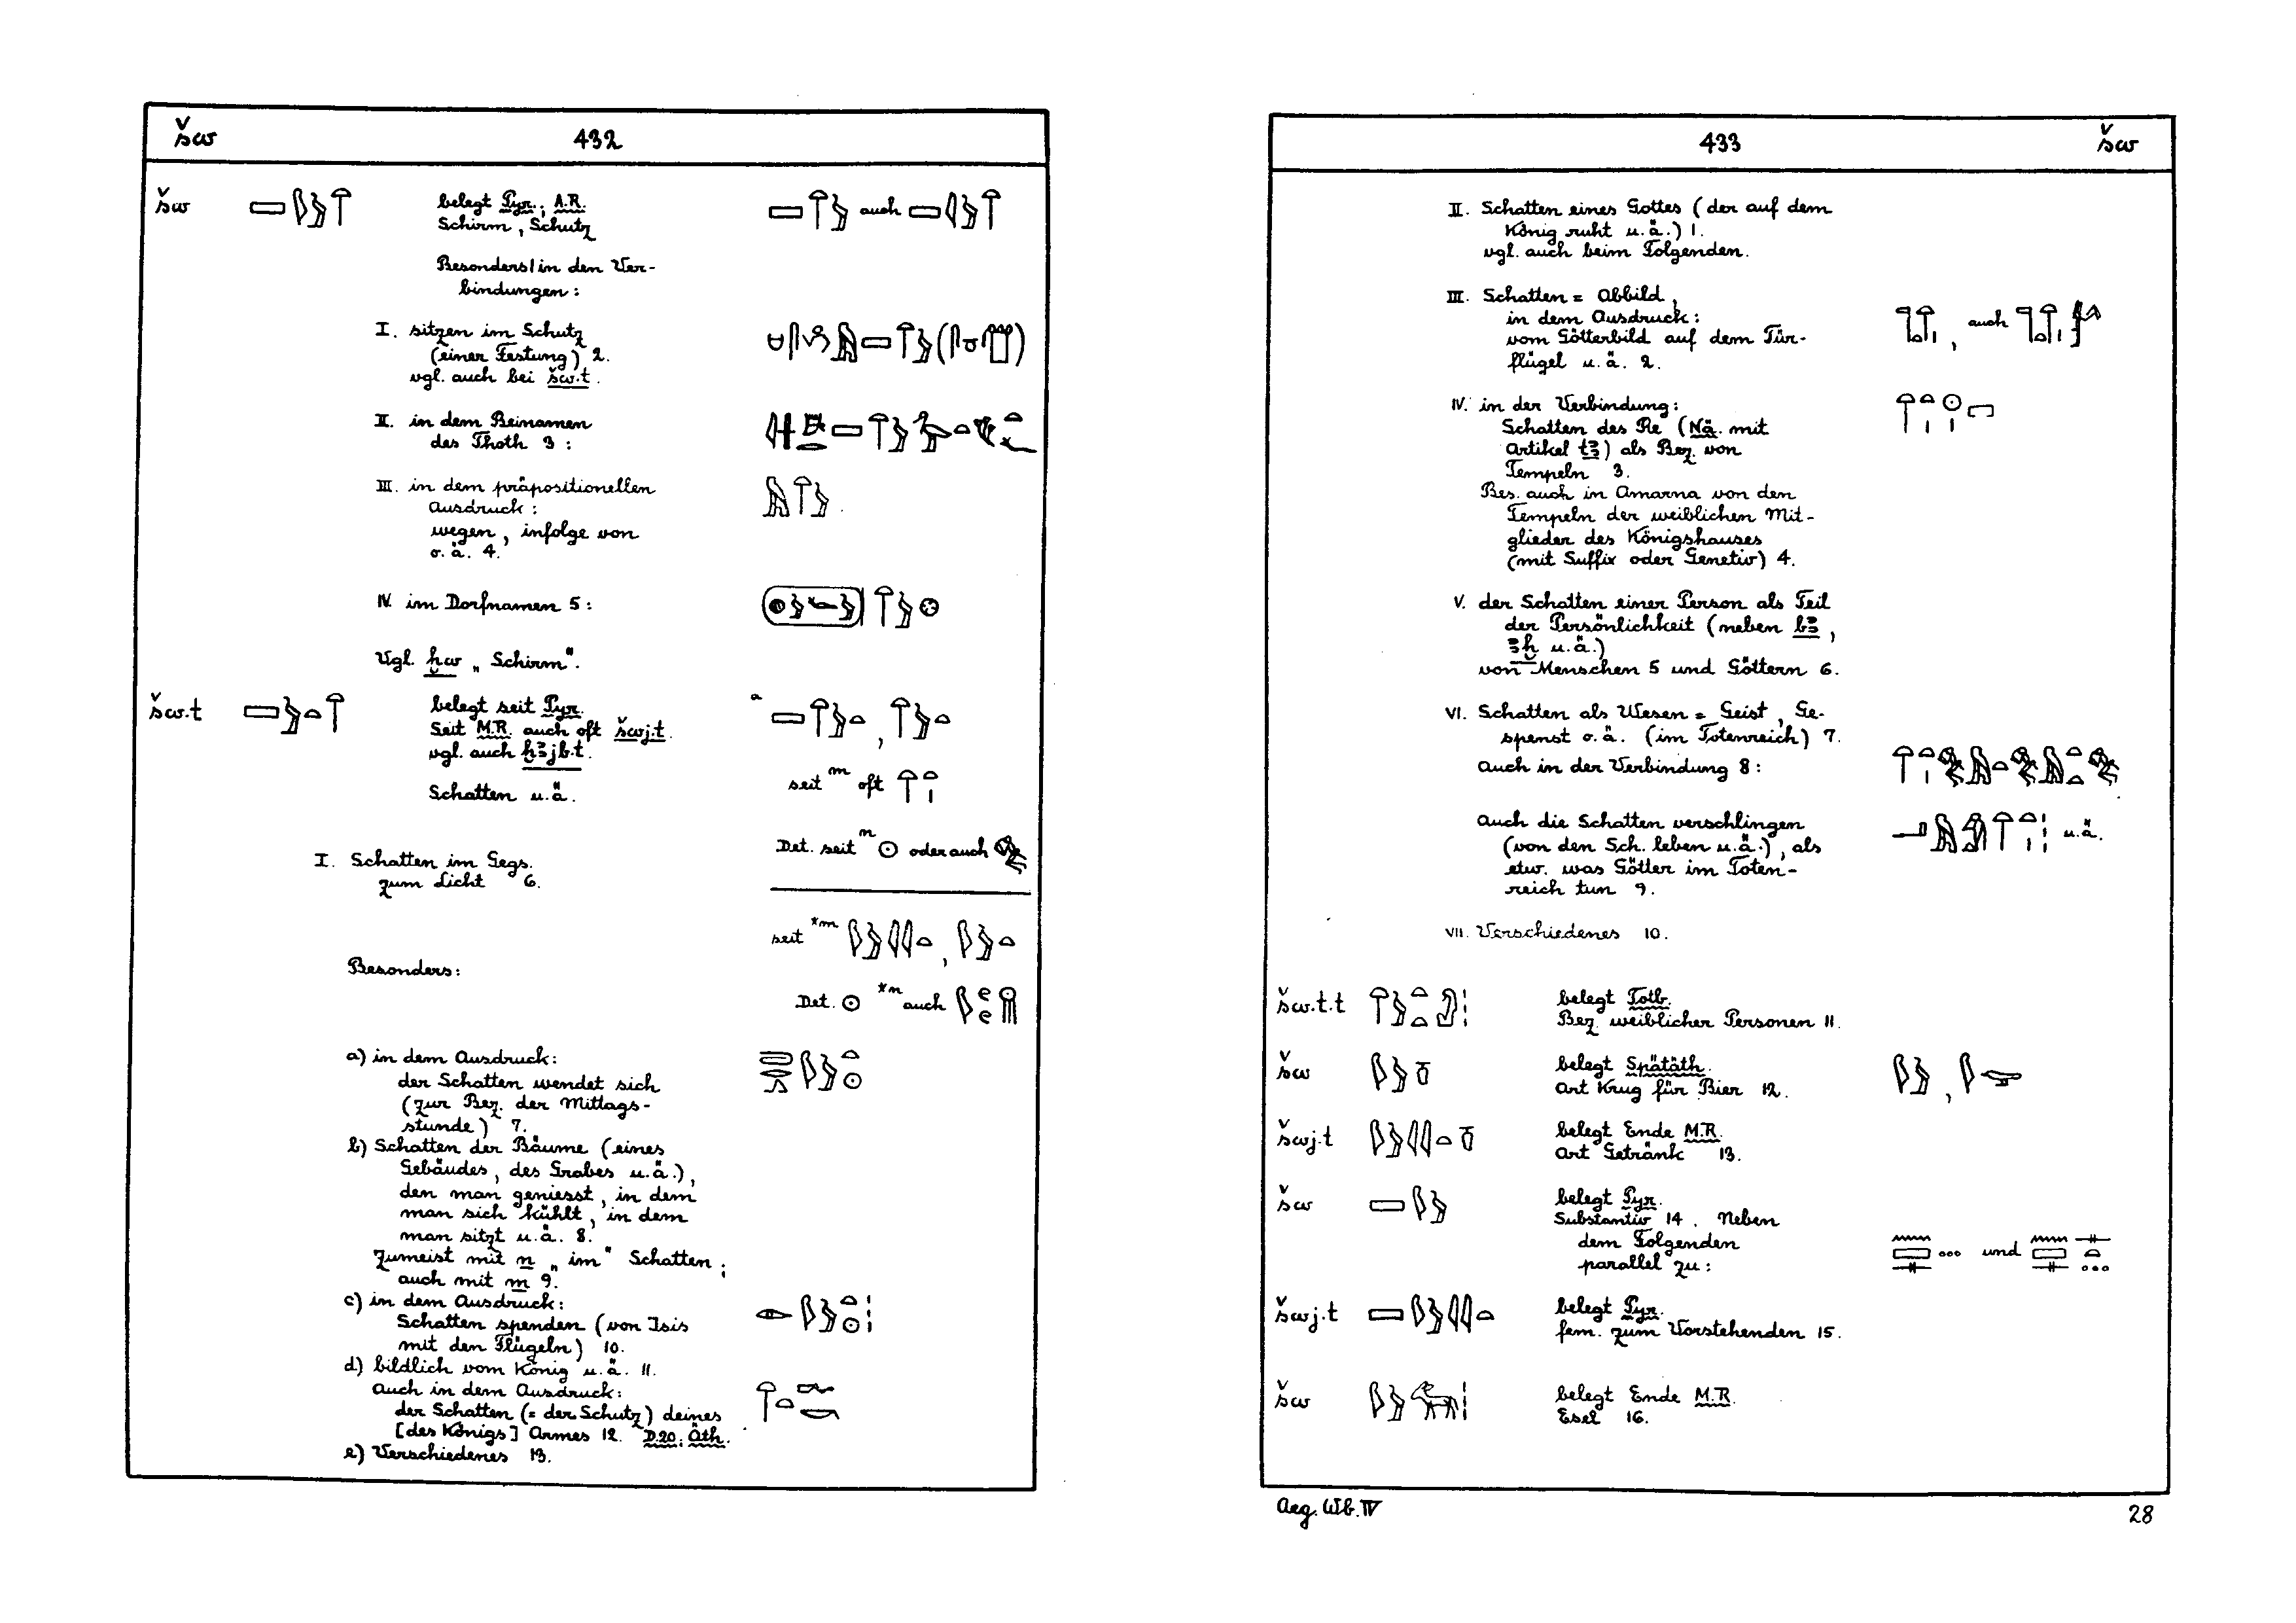 šw 432
šw belegt Pyr.; A.R. auch
Schirm, Schutz
Besonders 1 in den Ver-
bindungen:
I. sitzen im Schutz
(einer Festung) 2.
vgl. auch bei šw.t.
II. in dem Beinamen
des Thoth 3:
III. in dem präpositionellen
Ausdruck:
wegen, infolge von
o.ä. 4.
IV. im Dorfnamen 5:
Vgl. ḫw „Schirm".
šw.t belegt seit Pyr. a
Seit M.R. auch oft šwj.t.
vgl. auch ḫꜣjb.t.
Schatten u.ä.
seit m oft
Det. seit n ☉ oder auch
I. Schatten im Gegs.
zum Licht 6.
seit *m
Besonders:
Det. ☉ *n auch
a) in dem Ausdruck:
der Schatten wendet sich
(zur Bez. der Mittags-
stunde) 7.
b) Schatten der Bäume (eines
Gebäudes, des Grabes u.ä.),
den man geniesst, in dem
man sich kühlt, in dem
man sitzt u.ä. 8.
Zumeist mit n „im" Schatten;
auch mit m 9.
c) in dem Ausdruck:
Schatten spenden (von Isis
mit den Flügeln) 10.
d) bildlich vom König u.ä. 11.
Auch in dem Ausdruck:
der Schatten (= der Schutz) deines
[des Königs] Armes 12. D.20; Äth.
e) Verschiedenes 13.
433 šw
II. Schatten eines Gottes (der auf dem
König ruht u.ä.) 1.
vgl. auch beim Folgenden.
III. Schatten = Abbild,
in dem Ausdruck: , auch
vom Götterbild auf dem Tür-
flügel u.ä. 2.
IV. in der Verbindung:
Schatten des Re (Nä. mit
Artikel tꜣ) als Bez. von
Tempeln 3.
Bes. auch in Amarna von den
Tempeln der weiblichen Mit-
glieder des Königshauses
(mit Suffix oder Genetiv) 4.
V. der Schatten einer Person als Teil
der Persönlichkeit (neben bꜣ,
ꜣḫ u.ä.)
von Menschen 5 und Göttern 6.
VI. Schatten als Wesen = Geist, Ge-
spenst o.ä. (im Totenreich) 7.
Auch in der Verbindung 8:
Auch die Schatten verschlingen u.ä.
(von den Sch. leben u.ä.), als
etw. was Götter im Toten-
reich tun 9.
VII. Verschiedenes 10.
šw.t.t belegt Totb.
Bez. weiblicher Personen 11.
šw belegt Spätäth.
Art Krug für Bier 12.
šwj.t belegt Ende M.R.
Art Getränk 13.
šw belegt Pyr.
Substantiv 14. Neben
dem Folgenden und
parallel zu:
šwj.t belegt Pyr.
fem. zum Vorstehenden 15.
šw belegt Ende M.R.
Esel 16.
Aeg. Wb. IV 28